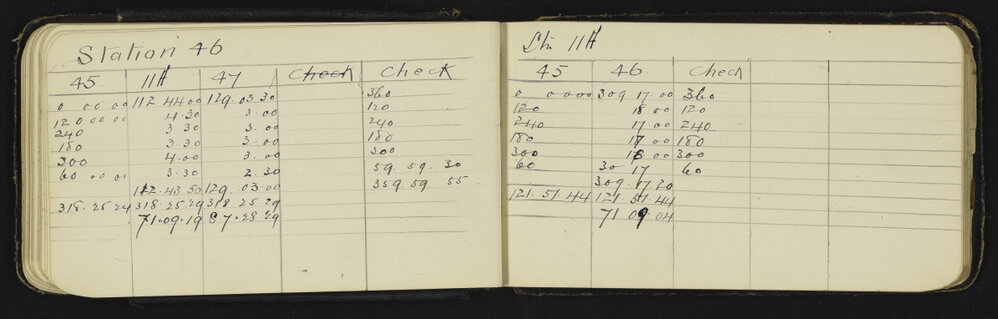 Station 46
45 11A 47 Check Check
0 00 00 112.44.00 129.03.30 360
120 00 00 4.30 3.00 120
240 3.30 3.00 240
180 3.30 3.00 180
300 4.00 3.00 300
60 00 00 3.30 2.30 59.59.30
112.43.50 129.03.00 359.59.55
318.25.29 318.25.29 318 25 29
71.09.19 87.28.29
Stn 11A
45 46. Check
0 00 00 309 17.00 360
120 18 00 120
240 17.00 240
180 17 00 180
300 18 00 300
60 30 17 60
309.17 20
121.51.44 121.51.44
71 09.04